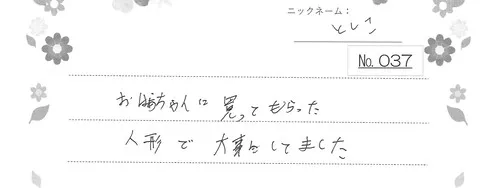 ニックネーム:
としこ
No. 037
お婆ちゃんに買ってもらった
人形で大事にしてました